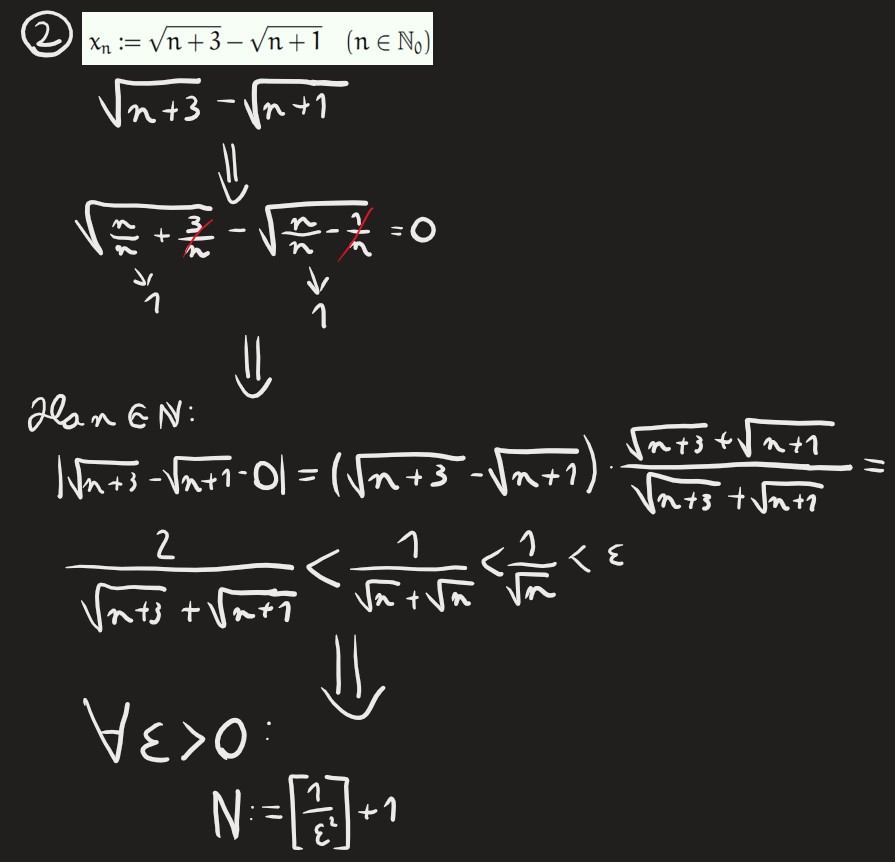 ② xₙ := √(n+3) − √(n+1) (n ∈ ℕ₀)
√(n+3) − √(n+1)
⇓
√(n/n + 3/n) − √(n/n − 1/n) = 0
↘ 1 ↓ 1
⇓
Ha n ∈ ℕ:
|√(n+3) − √(n+1) − 0| = (√(n+3) − √(n+1)) · (√(n+3) + √(n+1))/(√(n+3) + √(n+1)) =
2/(√(n+3) + √(n+1)) < 1/(√n + √n) < 1/√n < ε
⇓
∀ε>0:
N := [1/ε²] + 1